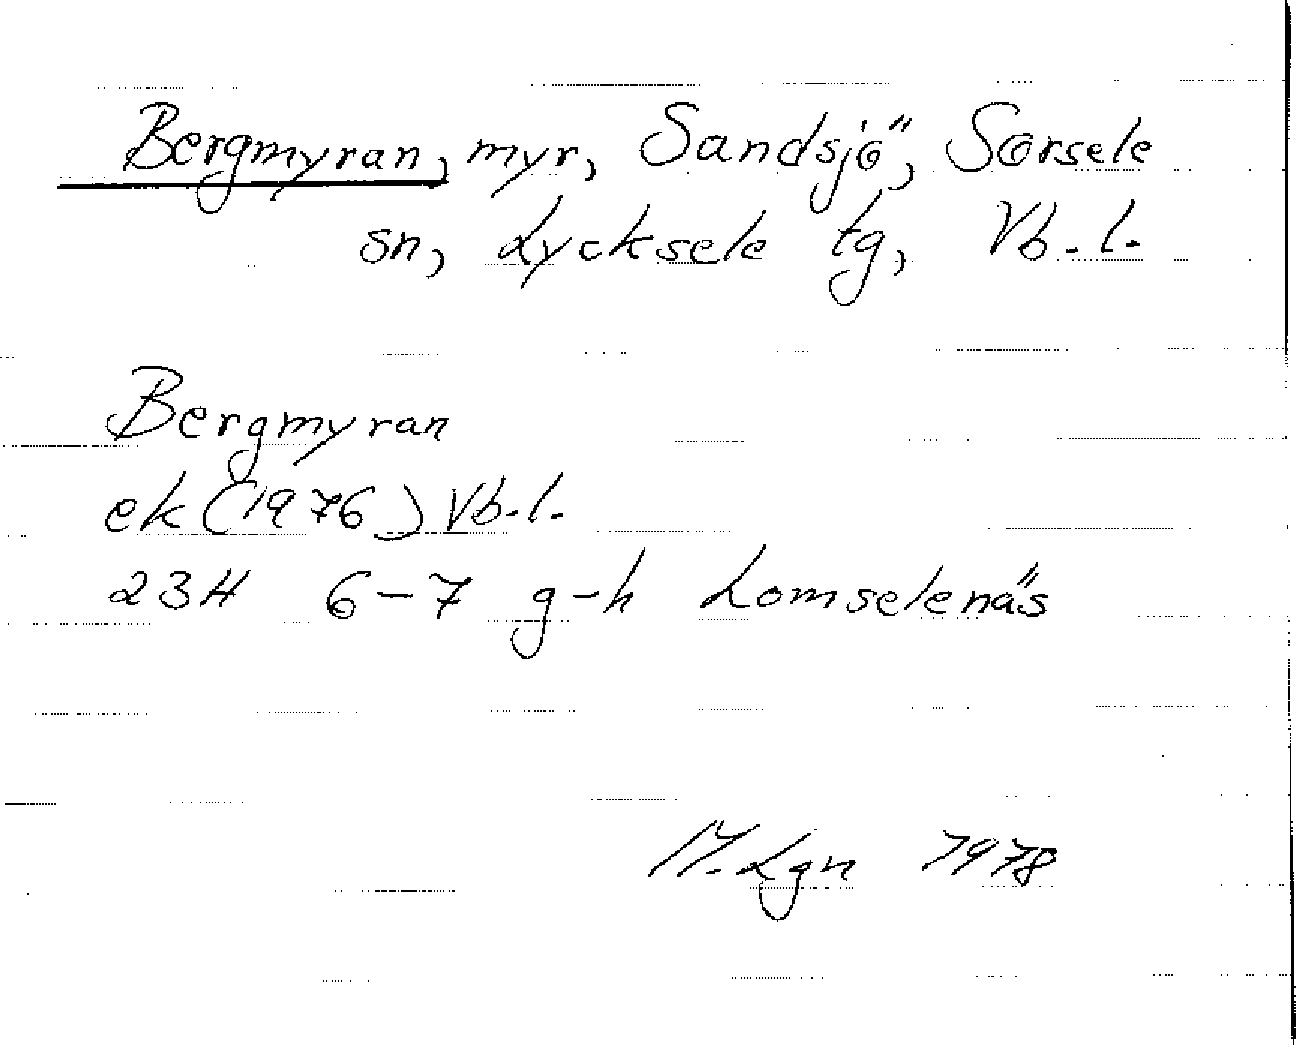 Bergmyran, myr, Sandsjö, Sorsele
sn, Lycksele tg, Vb. l.
Bergmyran
ek (1976) Vb. l.
23H 6-7 g-h Lomselenäs
M. Lgn 1978